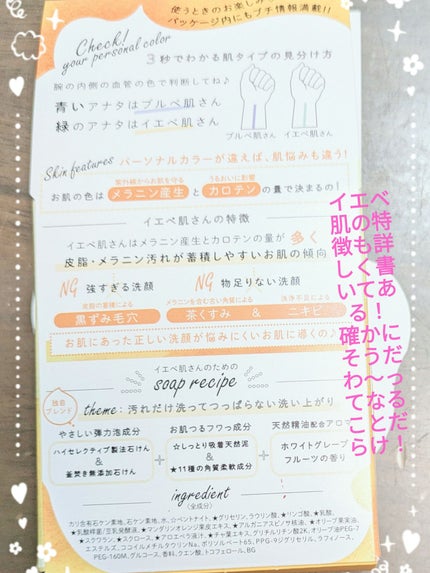 使うときのお楽しみ
パッケージ内にもプチ情報満載!!
Check!
your personal color
3秒でわかる肌タイプの見分け方
腕の内側の血管の色で判断してね♪
青いアナタはブルベ肌さん
緑のアナタはイエベ肌さん
ブルベ肌さん イエベ肌さん
Skin features パーソナルカラーが違えば、肌悩みも違う!
紫外線からお肌を守る うるおいに影響
お肌の色は メラニン産生 と カロテン の量で決まるの!
イエベ肌さんの特徴
イエベ肌さんはメラニン産生とカロテンの量が 多く
皮脂・メラニン汚れが蓄積しやすいお肌の傾向
NG 強すぎる洗顔 NG 物足りない洗顔
皮脂の蓄積による メラニンを含む古い角質による 洗浄不足による
黒ずみ毛穴 茶くすみ & ニキビ
お肌にあった正しい洗顔が悩みにくいお肌に導くの♪
イエベ肌さんのための
soap recipe
独自ブレンド
theme:汚れだけ洗ってつっぱらない洗い上がり
やさしい弾力泡成分 お肌つるフワっ成分 天然精油配合アロマ
ハイセレクティブ製法石けん
&
釜焚き無添加石けん
+
☆しっとり吸着天然泥
&
★11種の角質柔軟成分
+
ホワイトグレープ
フルーツの香り
ingredient
(全成分)
カリ含有石ケン素地、石ケン素地、水、☆ベントナイト、★グリセリン、ラウリン酸、★リンゴ酸、★乳酸、
★乳酸桿菌/豆乳発酵液、★マンダリンオレンジ果皮エキス、★アルガニアスピノサ核油、★オリーブ果実油、
★スクワラン、★スクロース、★アロエベラ液汁、★チャ葉エキス、グリチルリチン酸2K、オリーブ油PEG-7
エステルズ、ココイルメチルタウリンNa、ポリソルベート65、PPG-9ジグリセリル、ラフィノース、
PEG-160M、グルコース、香料、クエン酸、トコフェロール、BG
ベ特詳書あ!にだっるだ!
エのもくて!かう〜なとけ
イ肌徴しいる確そわてこら